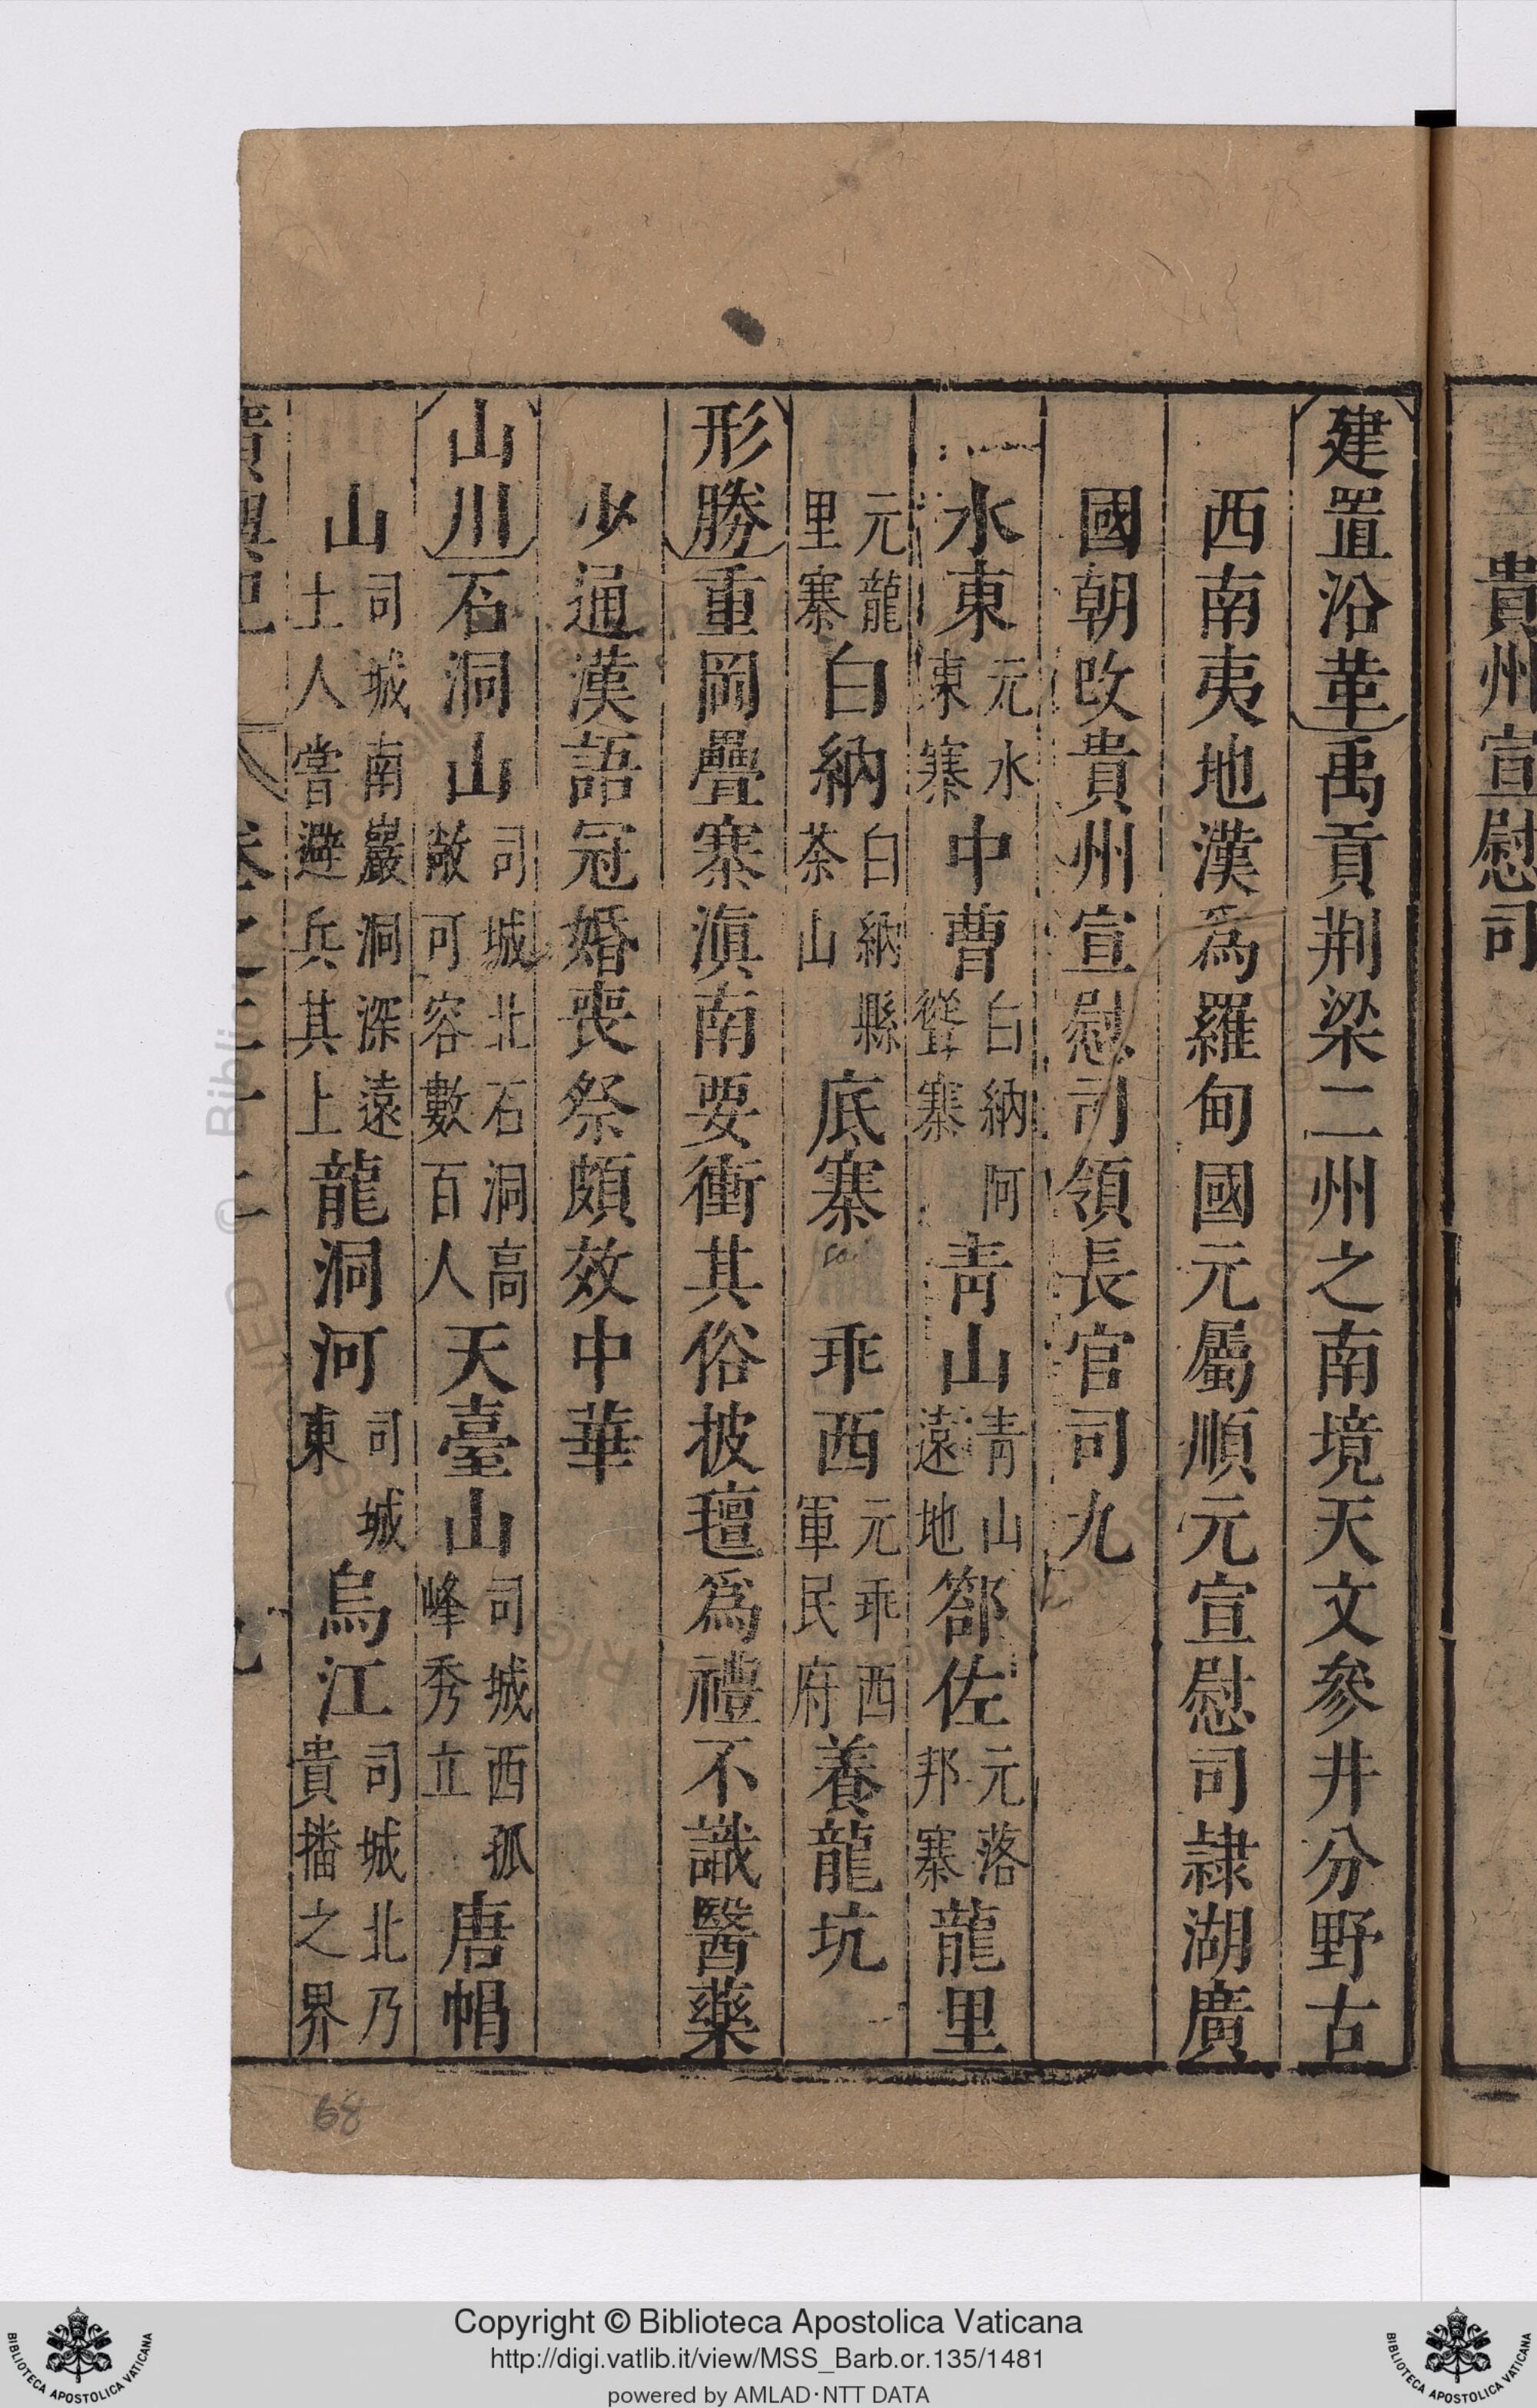 貴州宣慰司
建置沿革禹貢荆梁二州之南境天文參井分野古
西南夷地漢爲羅甸國元屬順元宣慰司隷湖廣
國朝改貴州宣慰司領長官司九
水東元水東寨中曹白納阿聳寨青山青山遠地劄佐元落邦寨龍里
元龍里寨白納白納縣茶山底寨乖西元乖西軍民府養龍坑
形勝重岡疊寨滇南要衝其俗披氊爲禮不識醫藥
少通漢語冠婚喪祭頗效中華
山川石洞山司城北石洞高敞可容數百人天臺山司城西孤峰秀立唐帽
山司城南巖洞深遠土人嘗避兵其上龍洞河司城東烏江司城北乃貴播之界
廣輿記 卷之二十二
68
Copyright © Biblioteca Apostolica Vaticana
http://digi.vatlib.it/view/MSS_Barb.or.135/1481
powered by AMLAD·NTT DATA
BIBLIOTECA APOSTOLICA VATICANA
BIBLIOTECA APOSTOLICA VATICANA